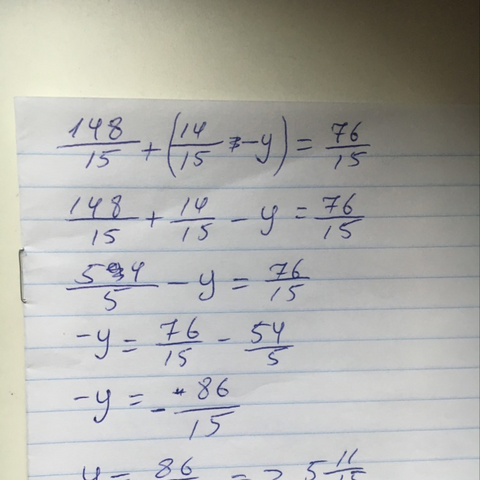 148/15 + (14/15 - y) = 76/15
148/15 + 14/15 - y = 76/15
54/5 - y = 76/15
-y = 76/15 - 54/5
-y = -86/15
y = 86 = 5 11/15